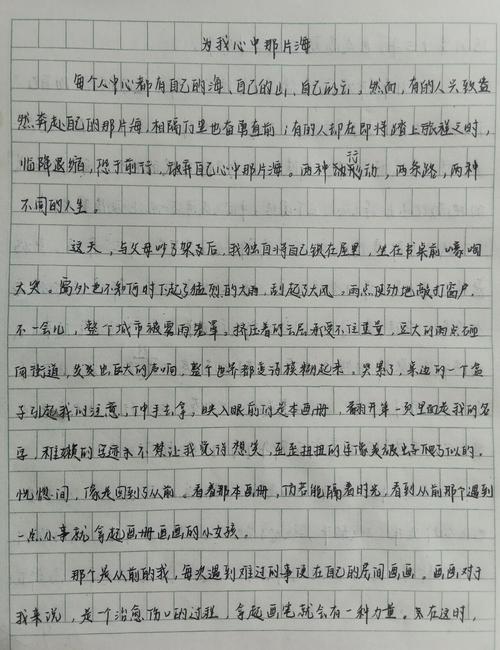 为我心中那片海
每个人中心都有自己的海、自己的山、自己的云，然而，有的人兴致盎
然奔赴自己的那片海，相隔万里也奋勇直前；有的人却在即将踏上旅程之时，
临阵退缩，恐于前行，放弃自己心中那片海。两种行动，两条路，两种
不同的人生。
这天，与父母吵了架之后，我独自将自己锁在屋里，坐在书桌前嚎啕
大哭。窗外也不知何时下起了猛烈的大雨，刮起了大风。雨点灵动地敲打窗户，
不一会儿，整个城市被雾雨笼罩。挤压着的云层承受不住重量，豆大的雨点砸
向街道，发发出巨大的声响，整个世界都变得模糊起来。哭累了，桌边的一个盒
子引起我的注意，伸手去拿，映入眼前的是本画册，翻开第一页里面是我的名
字，稚嫩的字迹不禁让我觉得想笑，歪歪扭扭的字像是被虫子爬了似的。
恍惚间，像是回到了从前。看着那本画册，仿若能隔着时光，看到从前那个遇到
一点小事就拿起画册画画的小女孩。
那个是从前的我，每次遇到难过的事便在自己的房间画画。画画对于
我来说，是一个治愈伤口的过程，拿起画笔就会有一种力量。呆在这时，